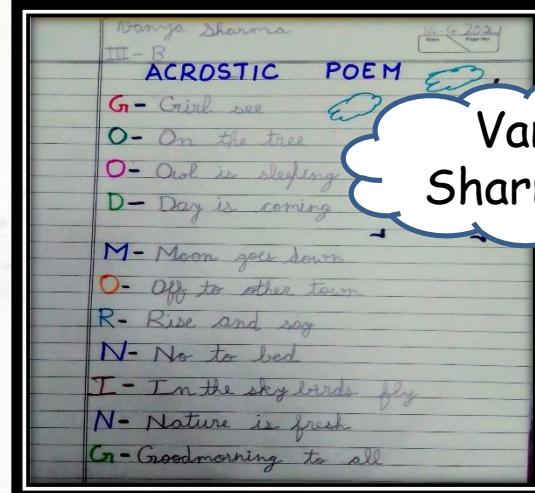 Vanya Sharma
Date Page No.
III - B
ACROSTIC POEM
G- Girl see
O- On the tree
O- Owl is sleeping
D- Day is coming
M- Moon goes down
O- Off to other town
R- Rise and say
N- No to bed
I- In the sky birds fly
N- Nature is fresh
G- Goodmorning to all